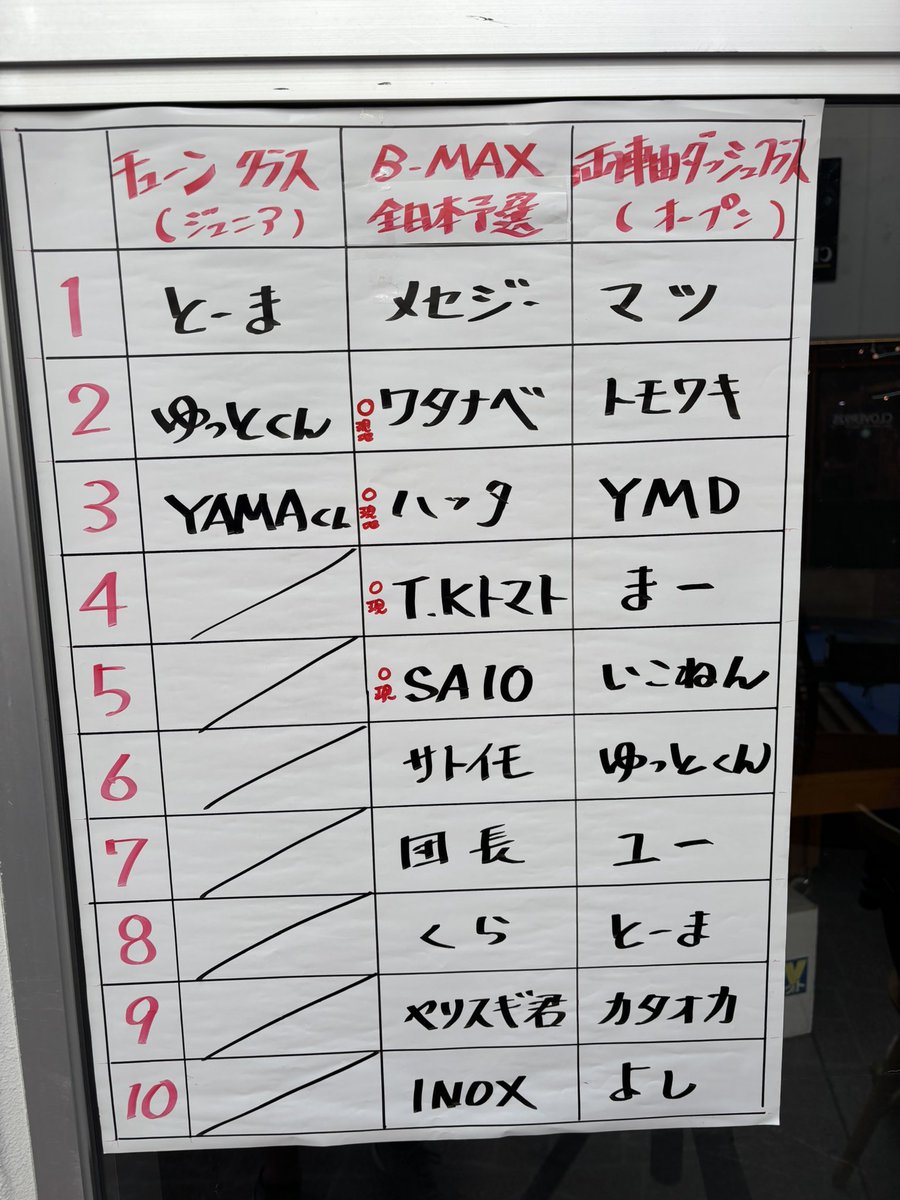 チューン クラス B-MAX 両軸ダッシュクラス
(ジュニア) 全日本予選 (オープン)
1 とーま メセジー マツ
2 ゆっとくん ○現 ワタナベ トモワキ
3 YAMAくん ○現 ハッタ YMD
4 ○現 T.Kトマト まー
5 ○現 SAIO いこねん
6 サトイモ ゆっとくん
7 団長 ユー
8 くら とーま
9 ヤリスギ君 カタオカ
10 INOX よし